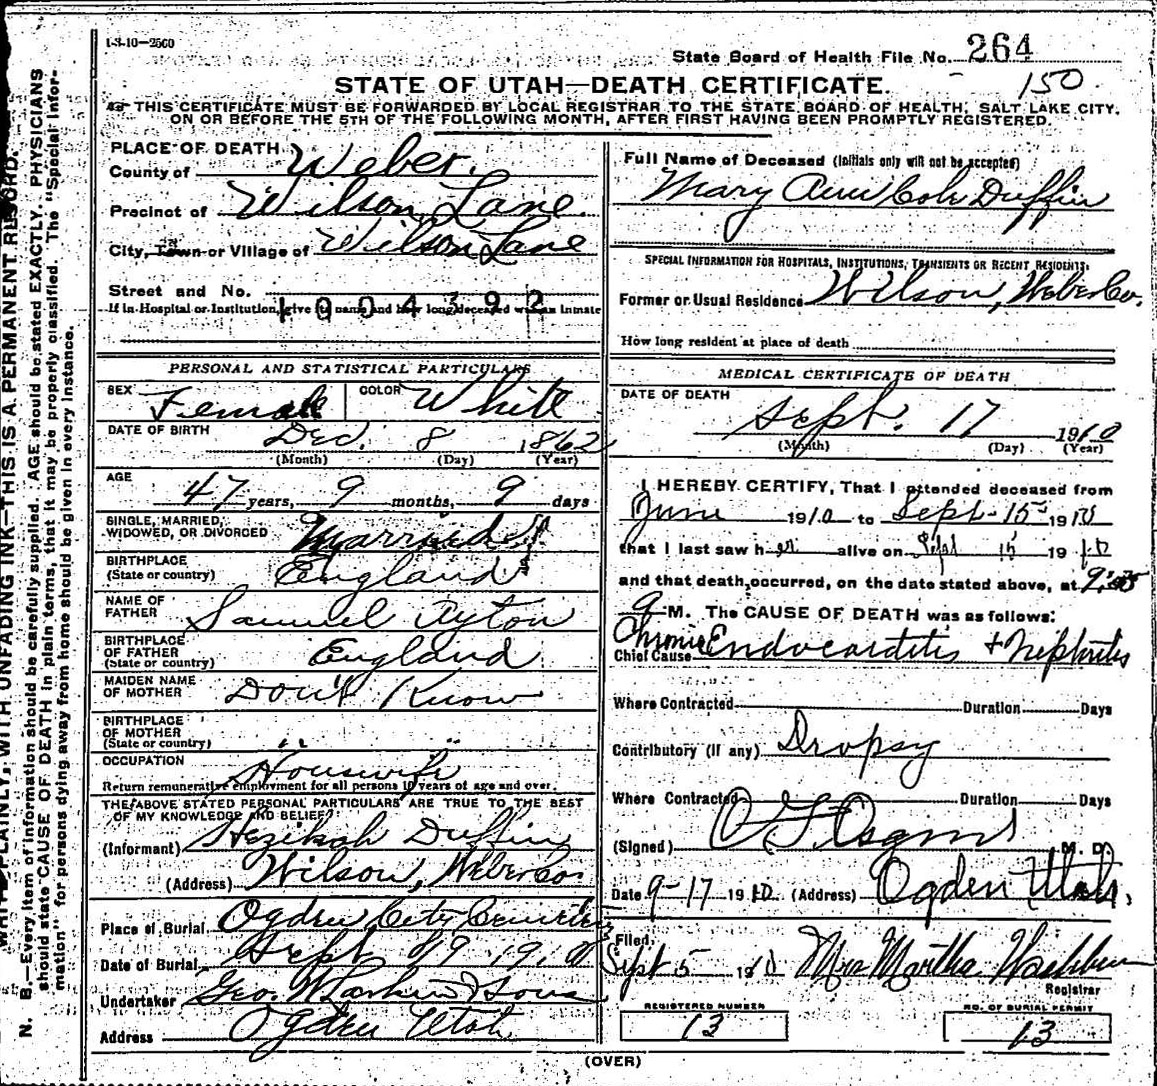 1-3-10-2500
State Board of Health File No. 264
150
STATE OF UTAH—DEATH CERTIFICATE.
THIS CERTIFICATE MUST BE FORWARDED BY LOCAL REGISTRAR TO THE STATE BOARD OF HEALTH, SALT LAKE CITY,
ON OR BEFORE THE 5TH OF THE FOLLOWING MONTH, AFTER FIRST HAVING BEEN PROMPTLY REGISTERED.
PLACE OF DEATH
County of Weber.
Precinct of Wilson Lane.
City, Town or Village of Wilson Lane
Street and No.
1004392
If in Hospital or Institution, give its name and how long deceased was an inmate
PERSONAL AND STATISTICAL PARTICULARS
SEX Female COLOR White
DATE OF BIRTH Dec. 8 1862
(Month) (Day) (Year)
AGE
47 years, 9 months, 9 days
SINGLE, MARRIED,
WIDOWED, OR DIVORCED Married
BIRTHPLACE
(State or country) England
NAME OF
FATHER Samuel Ayton
BIRTHPLACE
OF FATHER
(State or country) England
MAIDEN NAME
OF MOTHER Don't Know
BIRTHPLACE
OF MOTHER
(State or country) " "
OCCUPATION Housewife
Return remunerative employment for all persons 10 years of age and over.
THE ABOVE STATED PERSONAL PARTICULARS ARE TRUE TO THE BEST
OF MY KNOWLEDGE AND BELIEF
(Informant) Hezikah Duffin
(Address) Wilson, Weber Co.
Place of Burial Ogden City
Date of Burial Sept 19 1910
Undertaker Geo. W Larkin & Sons
Address Ogden Utah
Full Name of Deceased (Initials only will not be accepted)
Mary Ann Cole Duffin
SPECIAL INFORMATION FOR HOSPITALS, INSTITUTIONS, TRANSIENTS OR RECENT RESIDENTS.
Former or Usual Residence Wilson, Weber Co.
How long resident at place of death
MEDICAL CERTIFICATE OF DEATH
DATE OF DEATH
Sept. 17 1910
(Month) (Day) (Year)
I HEREBY CERTIFY, That I attended deceased from
June 1910 to Sept. 15 1910
that I last saw her alive on Sept 15 1910
and that death occurred, on the date stated above, at
M. The CAUSE OF DEATH was as follows:
Chief Cause Chronic Endocarditis + Nephritis
Where Contracted Duration Days
Contributory (if any) Dropsy
Where Contracted Duration Days
(Signed) M. D.
Date 9-17 1910 (Address) Ogden Utah.
Filed,
Sept 5 1910 Mrs Martha Washburn
Registrar
REGISTERED NUMBER
13
NO. OF BURIAL PERMIT
13
(OVER)
WRITE PLAINLY, WITH UNFADING INK—THIS IS A PERMANENT RECORD.
N. B.—Every item of information should be carefully supplied. AGE should be stated EXACTLY. PHYSICIANS
should state CAUSE OF DEATH in plain terms, that it may be properly classified. The "Special Infor-
mation" for persons dying away from home should be given in every instance.